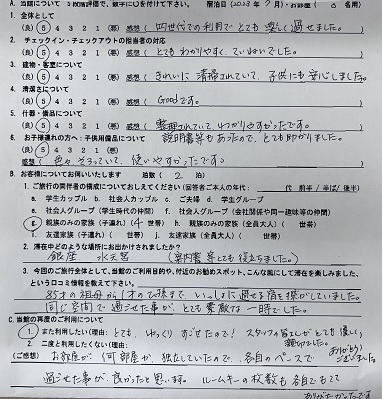 A. 当館について 5段階評価、数字に○を付けて下さい。 宿泊日（2023年9月・お部屋（ 6 名用）
1. 全体として
（良）5 4 3 2 1（悪） 感想（ 四世代での利用でとても楽しく過せました。
2. チェックイン・チェックアウトの担当者の対応
（良）5 4 3 2 1（悪） 感想（ とてもわかりやすく、ていねいでした。
3. 建物・客室について
（良）5 4 3 2 1（悪） 感想（ きれいに清掃されていて、子供にも安心しました。
4. 清潔さについて
（良）5 4 3 2 1（悪） 感想（ Goodです。
5. 什器・備品について
（良）5 4 3 2 1（悪） 感想（ 整理されていて、わかりやすかったです。
6. お子様連れの方へ：子供用備品について 説明書等もあったので、とても助かりました。
（良）5 4 3 2 1（悪）
感想（ 色々そろっていて、使いやすかったです
B. お客様についてお伺いいたします 泊数（ 2 泊）
1. ご旅行の同伴者の構成についておしえてください（回答者ご本人の年代： 代 前半／半ば／後半）
a. 学生カップル b. 社会人カップル c. ご夫婦 d. 学生グループ
e. 社会人グループ（学生時代の仲間） f. 社会人グループ（会社関係や同一趣味等の仲間）
g. 親族のみの家族（子連れ）（4 世帯） h. 親族のみの家族（全員大人）（ 世帯）
i. 友達家族（子連れ）（ 世帯） j. 友達家族（全員大人）（ 世帯）
2. 滞在中どのような場所にお出かけされましたか？
銀座 水天宮 （案内書とても役立ちました。）
3. 今回のご旅行全体として、当館のご利用目的や、付近のお勧めスポット、こんな風にして滞在を楽しみました、
という口コミ情報を教えて下さい。
85才の祖母から1才のひ孫まで、いっしょに過せる宿を探がしていました。
同じ空間で過せた事が、とても素敵な一時でした。
C. 当館の再度のご利用について
1. また利用したい（理由： とても、ゆっくりすごせたので！ スタッフの皆さんがとても優しく、親切でした。
2. 二度と利用したくない（理由： ありがとうございました。
（ご感想） お部屋が（何部屋か）独立していたので、各自のペースで
過ごせた事が、良かったと思います。 ルームキーの枚数も各自もてて
ありがたかったです